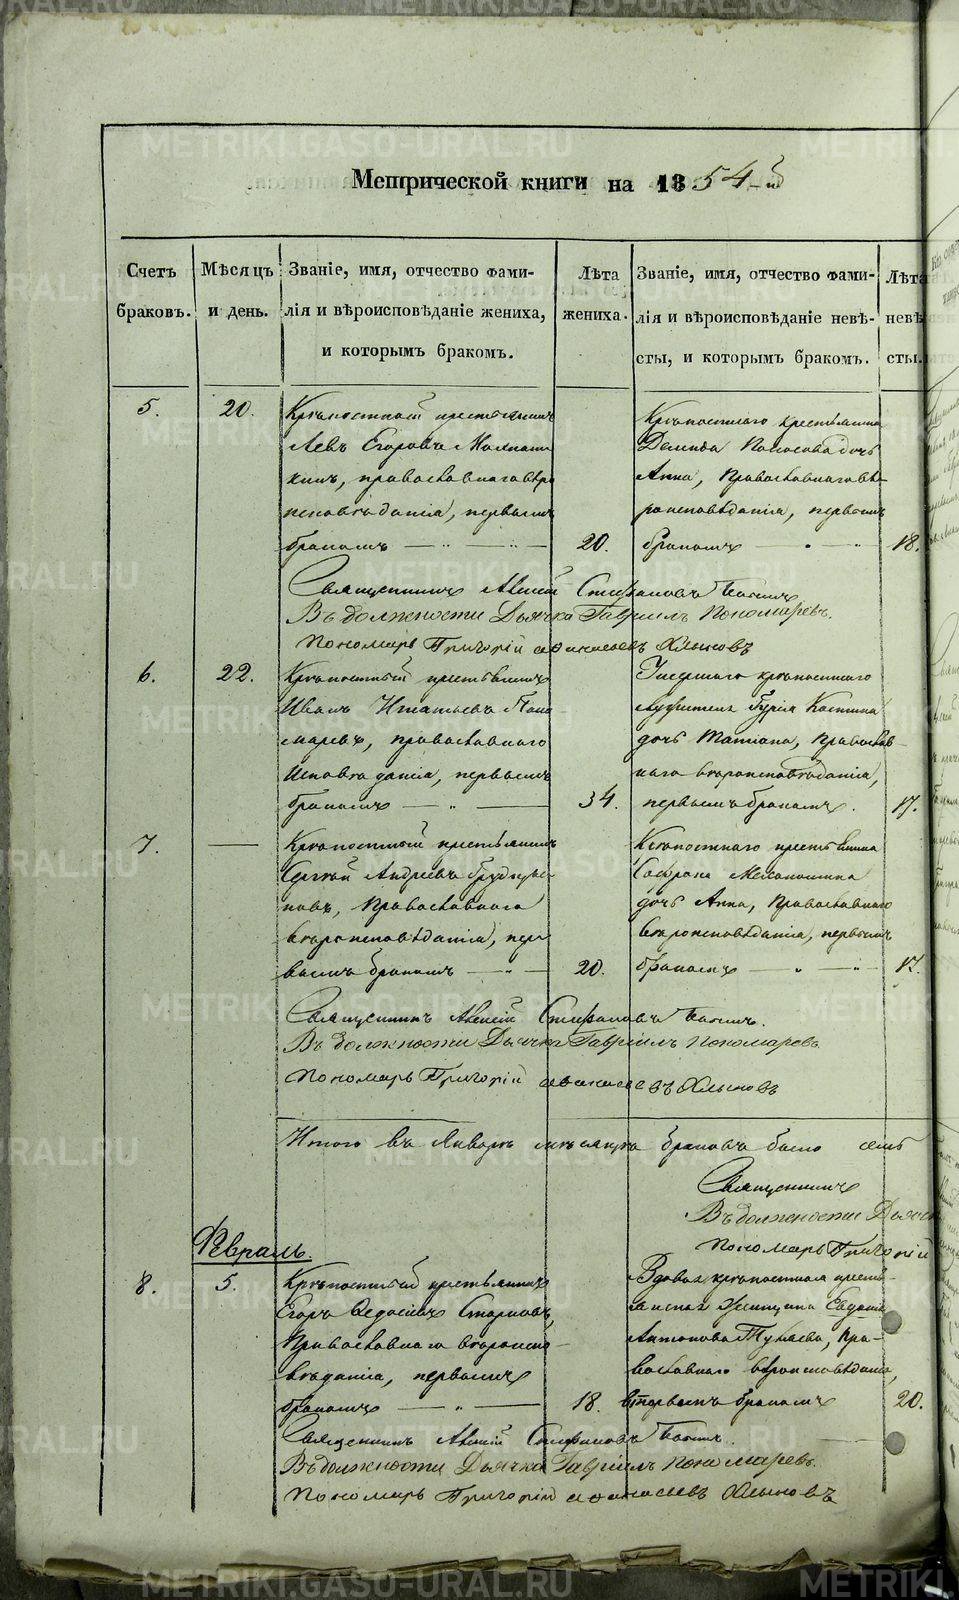 Метрической книги на 1854-й
Счетъ браковъ.
Мѣсяцъ и день.
Званіе, имя, отчество фами-
лія и вѣроисповѣданіе жениха,
и которымъ бракомъ.
Лѣта жениха.
Званіе, имя, отчество фами-
лія и вѣроисповѣданіе невѣ-
сты, и которымъ бракомъ.
Лѣта невѣ
сты.
5.
20.
Крѣпостный крестьянинъ
Левъ Егоровъ
кинъ, православнаго вѣро
исповѣданія, первымъ
бракомъ
20.
Крѣпостнаго крестьянина
Демида дочь
Анна, Православнаго вѣ-
роисповѣданія, первымъ
бракомъ
18.
Священникъ Алексій Стефановъ
Въ должности Дьячка Гавріилъ Пономаревъ.
Пономарь Григорій Аѳанасьевъ Хлыновъ
6.
22.
Крѣпостный крестьянинъ
Иванъ Игнатьевъ Поно
маревъ, православнаго
исповѣданія, первымъ
бракомъ
34.
Умершаго крѣпостнаго
Гурія Костина
дочь Татіана, Православ-
наго вѣроисповѣданія,
первымъ бракомъ.
17.
7.
Крѣпостный крестьянинъ
Сергѣй Андреевъ
новъ, Православнаго
вѣроисповѣданія, пер
вымъ бракомъ
20.
Крѣпостнаго крестьянина
Софрона
дочь Анна, Православнаго
вѣроисповѣданія, первымъ
бракомъ
17.
Священникъ Алексій Стефановъ
Въ должности Дьячка Гавріилъ Пономаревъ
Пономарь Григорій Аѳанасьевъ Хлыновъ
Итого въ Январѣ мѣсяцѣ браковъ было семь
Священникъ
Въ должности Дьячк
Пономарь Григорій
Февраль.
8.
5.
Крѣпостный крестьянинъ
Егоръ Ѳедосѣевъ Старковъ,
Православнаго вѣроиспо-
вѣданія, первымъ
бракомъ
18.
Вдовая крѣпостная кресть-
янская женщина Евдокія
Антонова, Пра-
вославнаго вѣроисповѣданія,
вторымъ бракомъ
20.
Священникъ Алексій Стефановъ
Въ должности Дьячка Гавріилъ Пономаревъ.
Пономарь Григорій Аѳанасьевъ Хлыновъ
METRIKI.GASO-URAL.RU